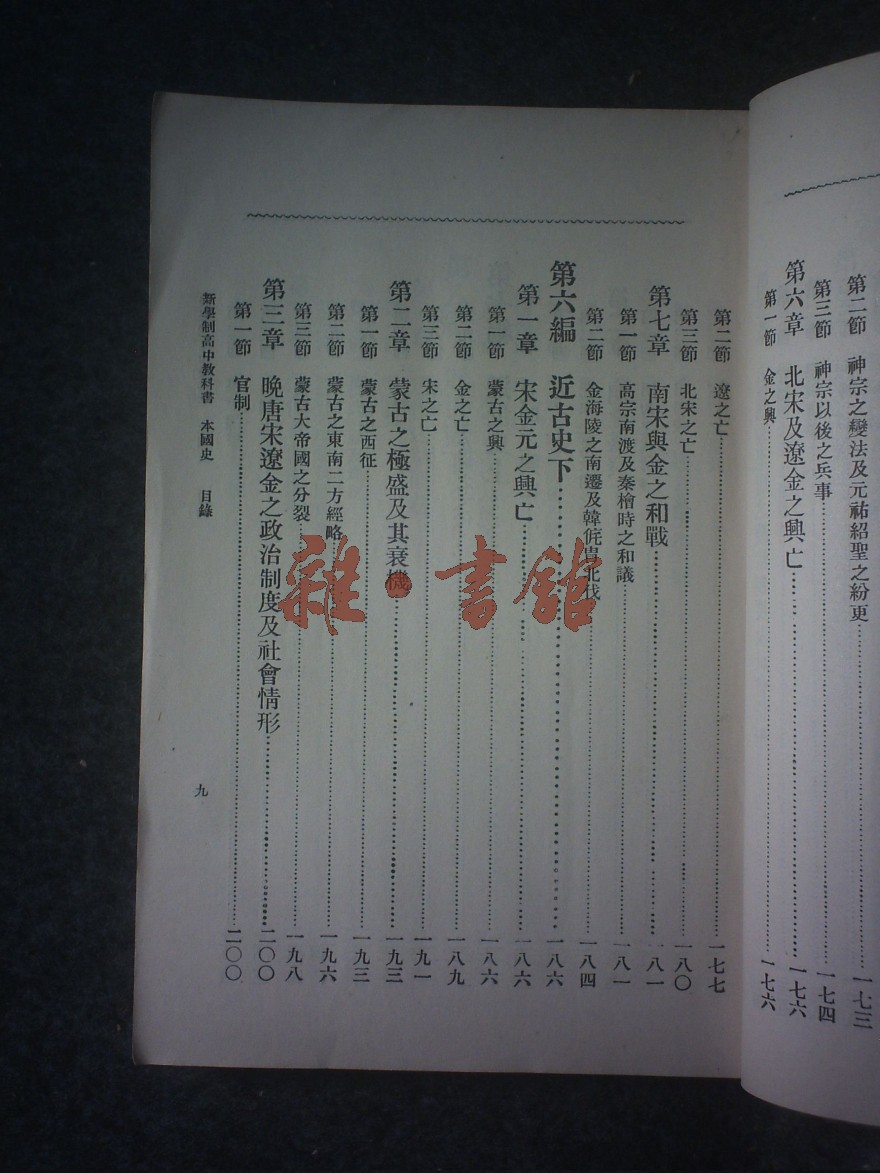 第二節　神宗之變法及元祐紹聖之紛更……一七三
第三節　神宗以後之兵事……一七四
第六章　北宋及遼金之興亡……一七六
第一節　金之興……一七六
第二節　遼之亡……一七七
第三節　北宋之亡……一八〇
第七章　南宋與金之和戰……一八一
第一節　高宗南渡及秦檜時之和議……一八一
第二節　金海陵之南遷及韓侂胄北伐……一八四
第六編　近古史下……一八六
第一章　宋金元之興亡……一八六
第一節　蒙古之興……一八六
第二節　金之亡……一八九
第三節　宋之亡……一九一
第二章　蒙古之極盛及其衰機……一九三
第一節　蒙古之西征……一九三
第二節　蒙古之東南二方經略……一九六
第三節　蒙古大帝國之分裂……一九八
第三章　晚唐宋遼金之政治制度及社會情形……二〇〇
第一節　官制……二〇〇
新學制高中教科書　本國史　目錄
九
雜·書館